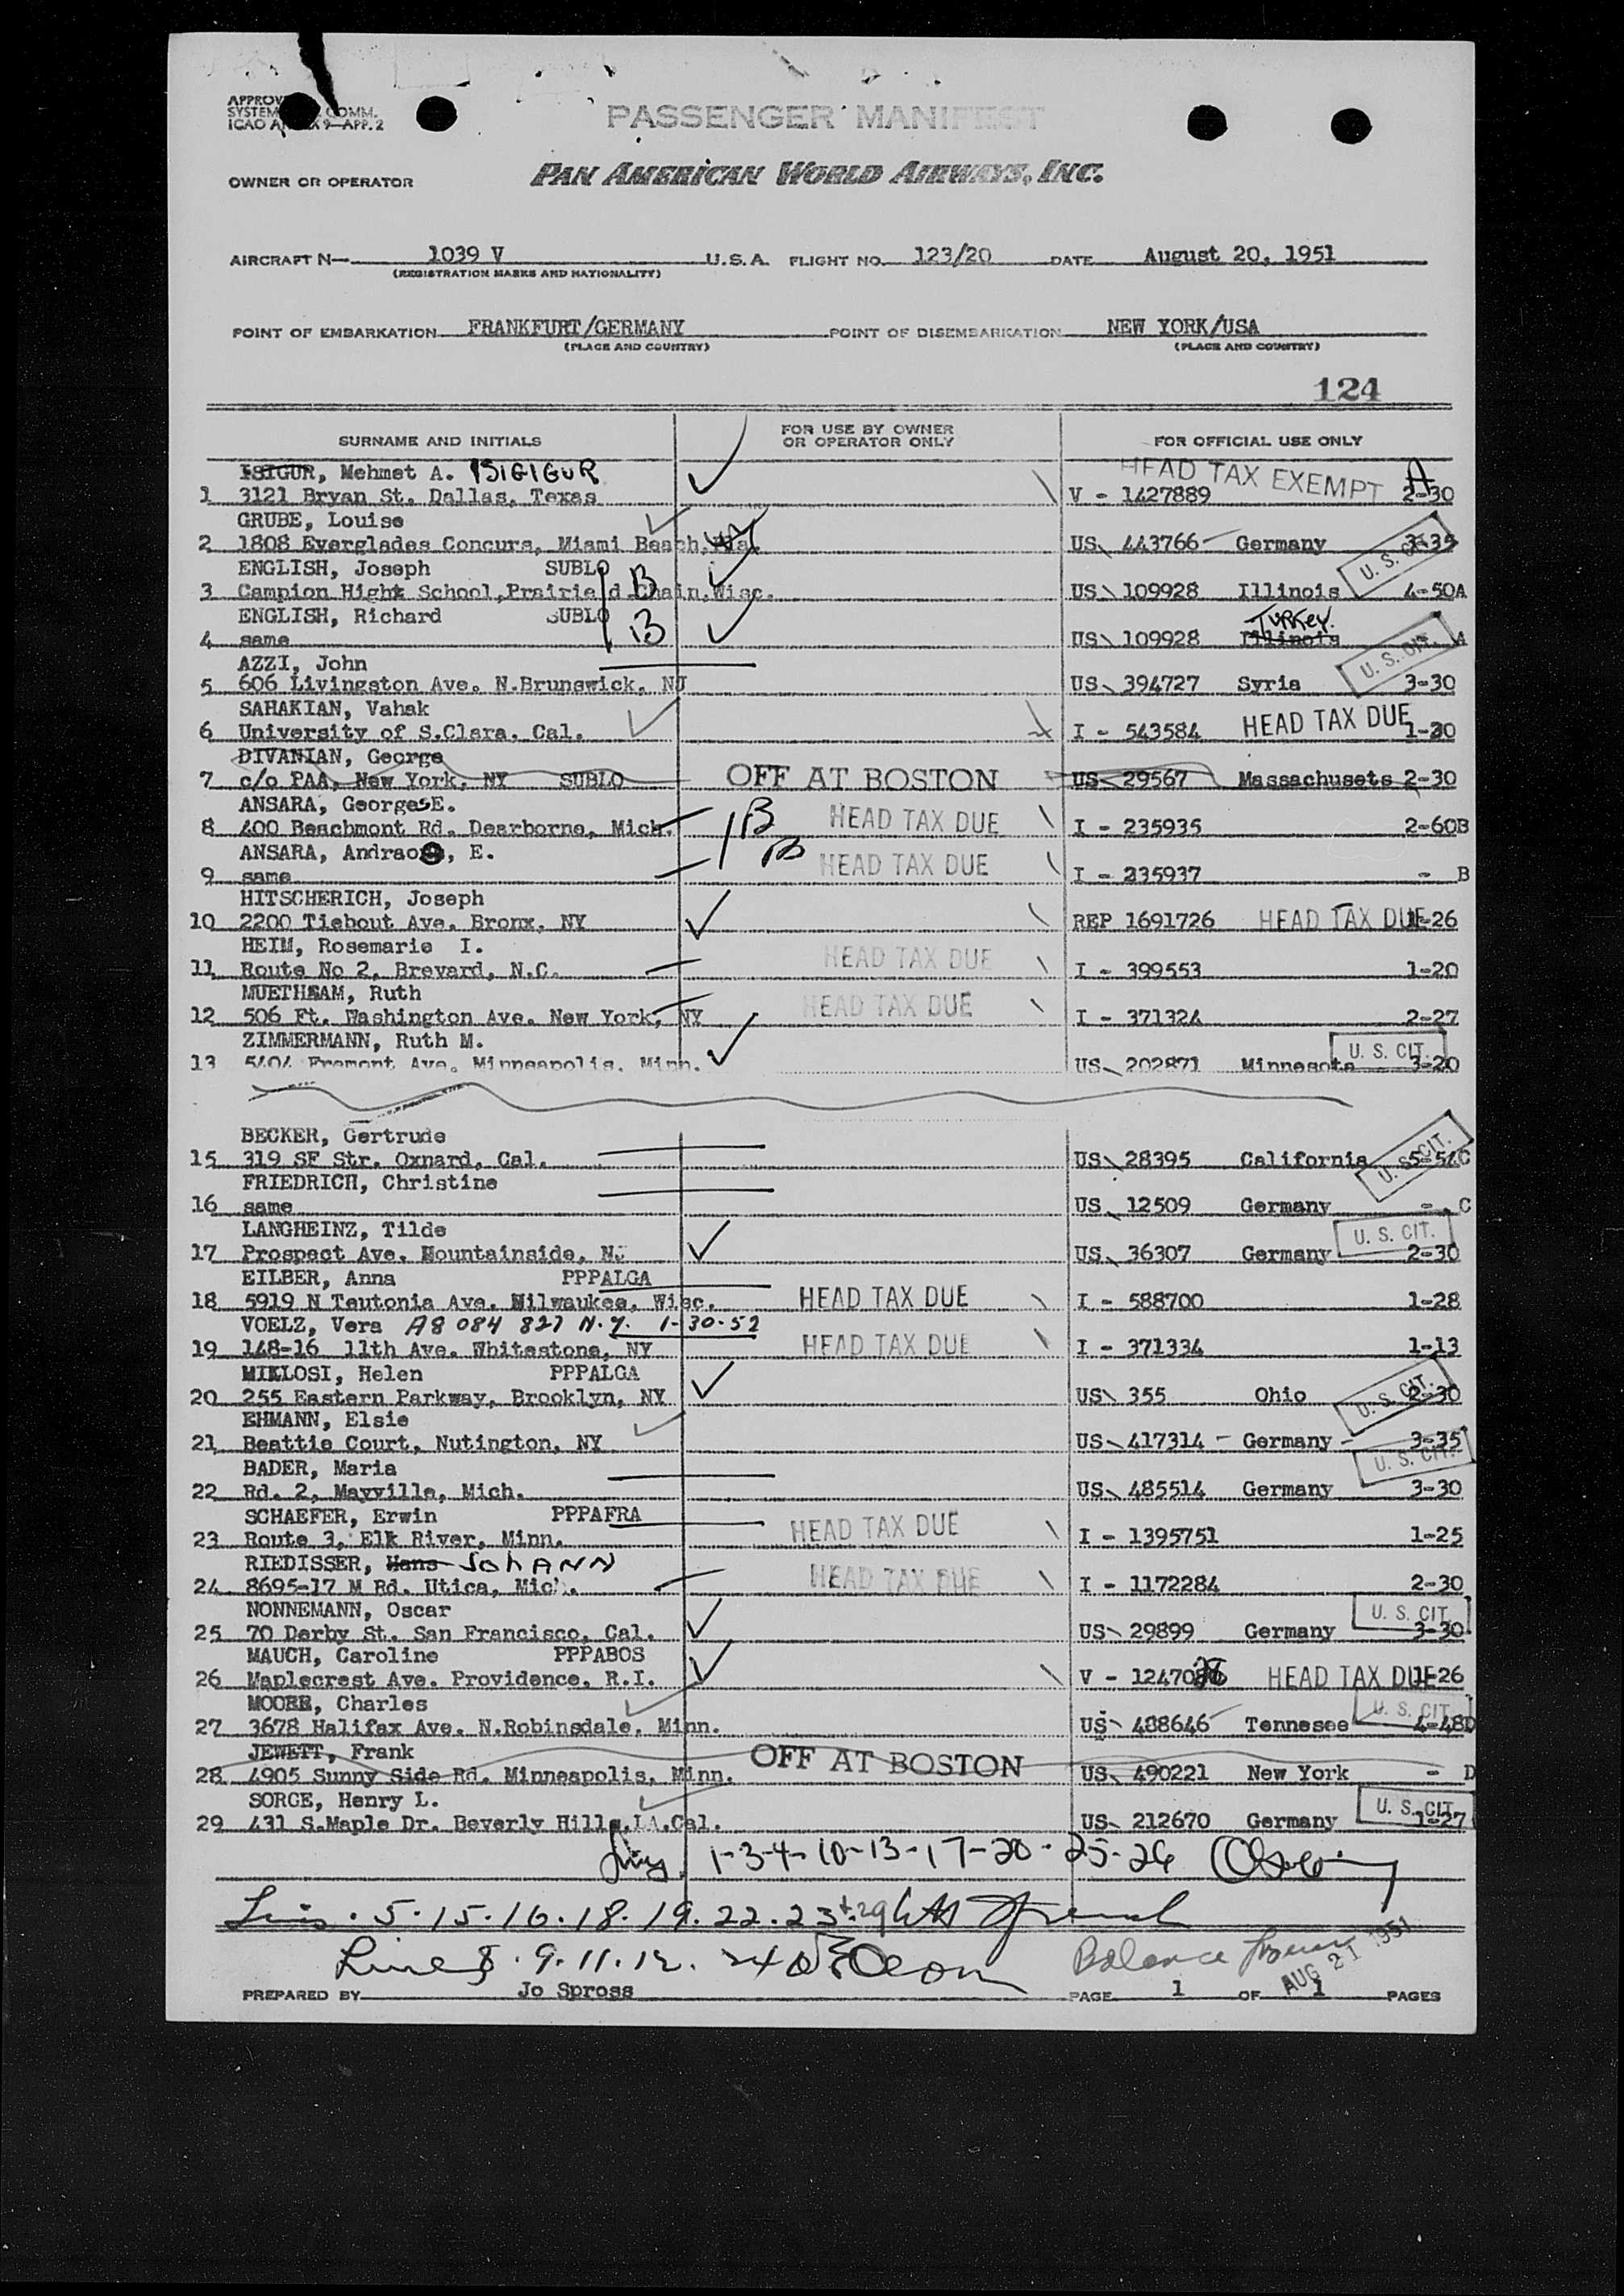 PASSENGER MANIFEST
OWNER OR OPERATOR PAN AMERICAN WORLD AIRWAYS, INC.
AIRCRAFT N— 1039 V U.S.A. FLIGHT NO. 123/20 DATE August 20, 1951
(REGISTRATION MARKS AND NATIONALITY)
POINT OF EMBARKATION FRANKFURT/GERMANY POINT OF DISEMBARKATION NEW YORK/USA
(PLACE AND COUNTRY) (PLACE AND COUNTRY)
124
SURNAME AND INITIALS FOR USE BY OWNER OR OPERATOR ONLY FOR OFFICIAL USE ONLY
ISIGUR, Mehmet A. ISIGIGUR HEAD TAX EXEMPT A
1 3121 Bryan St. Dallas, Texas V - 1427889 2-30
GRUBE, Louise
2 1808 Everglades Concurs, Miami Beach, Fla. US 443766 Germany 3-35 U. S. CIT.
ENGLISH, Joseph SUBLO B
3 Campion Hight School, Prairie d Chain, Wisc. US 109928 Illinois 4-50A
ENGLISH, Richard SUBLO B TURKEY.
4 same US 109928 Illinois - A U. S. CIT.
AZZI, John
5 606 Livingston Ave. N.Brunswick, NJ US 394727 Syria 3-30
SAHAKIAN, Vahak
6 University of S.Clara, Cal. I - 543584 HEAD TAX DUE 1-30
DIVANIAN, George
7 c/o PAA, New York, NY SUBLO OFF AT BOSTON US 29567 Massachusets 2-30
ANSARA, Georges E. B HEAD TAX DUE
8 400 Beachmont Rd. Dearborne, Mich. I - 235935 2-60B
ANSARA, Andrao, E. B HEAD TAX DUE
9 same I - 235937 - B
HITSCHERICH, Joseph
10 2200 Tiebout Ave. Bronx, NY REP 1691726 HEAD TAX DUE 1-26
HEIM, Rosemarie I. HEAD TAX DUE
11 Route No 2, Brevard, N.C. I - 399553 1-20
MUETHSAM, Ruth HEAD TAX DUE
12 506 Ft. Washington Ave. New York, NY I - 371324 2-27
ZIMMERMANN, Ruth M. U. S. CIT.
13 5404 Fremont Ave. Minneapolis, Minn. US 202871 Minnesota 3-20
BECKER, Gertrude
15 319 SF Str. Oxnard, Cal. US 28395 California 5-54C U. S. CIT.
FRIEDRICH, Christine
16 same US 12509 Germany - C
LANGHEINZ, Tilde U. S. CIT.
17 Prospect Ave. Mountainside, NJ US 36307 Germany 2-30
EILBER, Anna PPPALGA
18 5919 N Teutonia Ave. Milwaukee, Wisc. HEAD TAX DUE I - 588700 1-28
VOELZ, Vera A8 084 827 N.Y. 1-30-52
19 148-16 11th Ave. Whitestone, NY HEAD TAX DUE I - 371334 1-13
MIKLOSI, Helen PPPALGA
20 255 Eastern Parkway, Brooklyn, NY US 355 Ohio 2-30 U. S. CIT.
EHMANN, Elsie
21 Beattie Court, Nutington, NY US 417314 - Germany - 3-35
BADER, Maria U. S. CIT.
22 Rd. 2, Mayville, Mich. US 485514 Germany 3-30
SCHAEFER, Erwin PPPAFRA HEAD TAX DUE
23 Route 3, Elk River, Minn. I - 1395751 1-25
RIEDISSER, Hans JOHANN HEAD TAX DUE
24 8695-17 M Rd. Utica, Mich. I - 1172284 2-30
NONNEMANN, Oscar U. S. CIT.
25 70 Darby St. San Francisco, Cal. US 29899 Germany 3-30
MAUCH, Caroline PPPABOS
26 Maplecrest Ave. Providence, R.I. V - HEAD TAX DUE 1-26
MOORE, Charles U. S. CIT.
27 3678 Halifax Ave. N.Robinsdale, Minn. US 488646 Tennesee 4-48D
JEWETT, Frank OFF AT BOSTON
28 4905 Sunny Side Rd. Minneapolis, Minn. US 490221 New York - D
SORGE, Henry L. U. S. CIT.
29 431 S.Maple Dr. Beverly Hills, LA.Cal. US 212670 Germany 1-27
1-3-4-10-13-17-20-25-26
5.15.16.18.19.22.23+29
Line 8.9.11.12.24
Balance AUG 21 1951
PREPARED BY Jo Spross PAGE 1 OF 1 PAGES